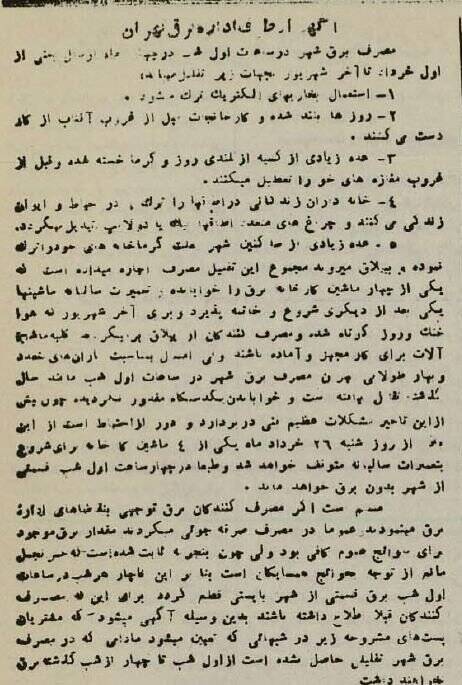 آگهی از طرف اداره برق تهران
مصرف برق شهر در ساعات اول شب در چهار ماه از سال یعنی از
اول خرداد تا آخر شهریور بجهات زیر تقلیل مییابد:
۱ـ استعمال بخاریهای الکتریک ترک میشود.
۲ـ روز ها بلند شده و کارخانجات قبل از غروب آفتاب از کار
دست می کشند.
۳ـ عده زیادی از کسبه از بلندی روز و گرما خسته شده و قبل از
غروب مغازه های خود را تعطیل میکنند.
۴ـ خانه داران زندگانی در اطاقها را ترک و در حیاط و ایوان
زندگی می کنند و چراغ های متعدد اطاقها بیک یا دو لامپ تبدیل میگردد.
۵ـ عده زیادی از ساکنین شهر بعلت گرما خانه های خود را ترک
نموده و به ییلاق میروند مجموع این تقلیل مصرف اجازه میداده است که
یکی از چهار ماشین کارخانه برق را خوابانده و تعمیرات سالیانه ماشینها
یکی بعد از دیگری شروع و خاتمه پذیرد و برای آخر شهریور که هوا
خنک و روز کوتاه شده و مصرف کنندگان از ییلاق بر میگردند کلیه ماشین
آلات برای کار مجهز و آماده باشند ولی امسال بمناسبت باران های ممتد
و بهار طولانی چون مصرف برق شهر در ساعات اول شب مانند سال
گذشته تقلیل نیافته است و خواباندن یکدستگاه مقدور نگردیده چون بیش
از این تاخیر مشکلات عظیم فنی در بر دارد و دور از احتیاط است از این
از روز شنبه ۲۶ خرداد ماه یکی از ۴ ماشین کارخانه برای شروع
بتعمیرات سالیانه متوقف خواهد شد و طبعا در چهار ساعت اول شب قسمتی
از شهر بدون برق خواهد ماند.
مسلم است اگر مصرف کنندگان برق توجهی بتقاضاهای اداره
برق مینمودند و عموما در مصرف صرفه جوئی میکردند مقدار برق موجود
برای حوائج عموم کافی بود ولی چون بتجربه ثابت شده است که
مانع از توجه حوائج همسایگان است بنا بر این ناچار هر شب در ساعات
اول شب برق قسمتی از شهر بایستی قطع گردد برای این که مصرف
کنندگان قبلا اطلاع داشته باشند بدین وسیله آگهی میشود که مشتریان
پست های مشروحه زیر در شبهائی که تعیین میشود مادامی که در مصرف
برق شهر تقلیلی حاصل نشده است از اول شب تا چهار از شب گذشته برق
نخواهند داشت